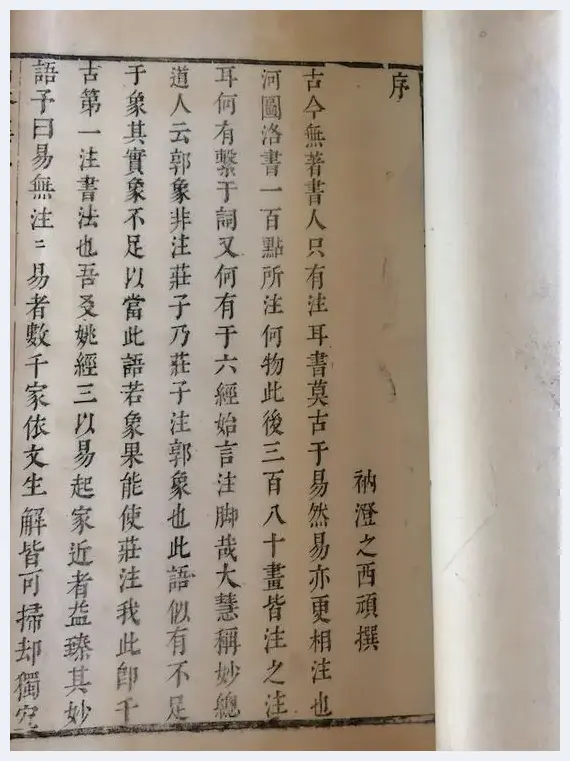 序
衲澄之西頑撰
古今無著書人只有注耳書莫古于易然易亦更相注也
河圖洛書一百點所注何物此後三百八十畫皆注之注
耳何有繫于詞又何有于六經始言注脚哉大慧稱妙總
道人云郭象非注莊子乃莊子注郭象也此語似有不足
于象其實象不足以當此語若象果能使莊注我此卽千
古第一注書法也吾友姚經三以易起家近者益臻其妙
語予曰易無注〻易者數千家依文生解皆可掃却獨